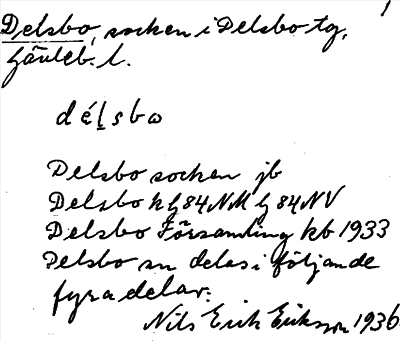 1
Delsbo, socken i Delsbo tg,
Gävleb. l.
dél̨sbo
Delsbo socken jb
Delsbo k h 84 NM h 84 NV
Delsbo Församling kb 1933
Delsbo sn delas i följande
fyra delar:
Nils Erik Eriksson 1936